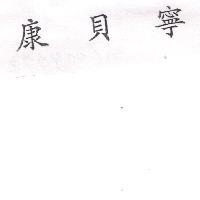 康貝寧